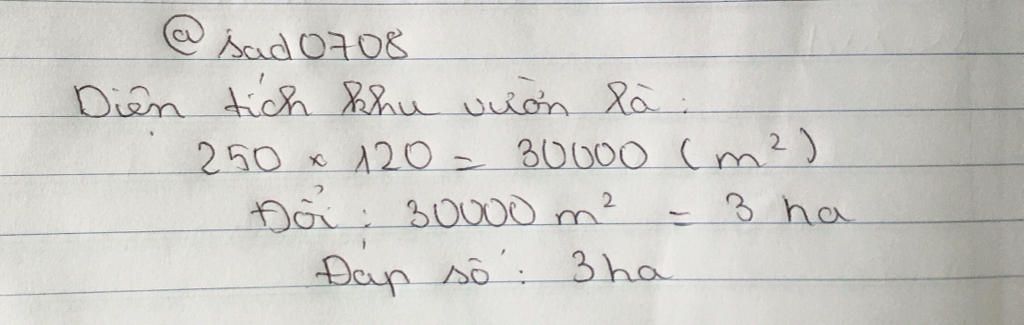 @sad0708
Diện tích khu vườn là:
250 × 120 = 30000 (m²)
Đổi: 30000 m² = 3 ha
Đáp số: 3 ha